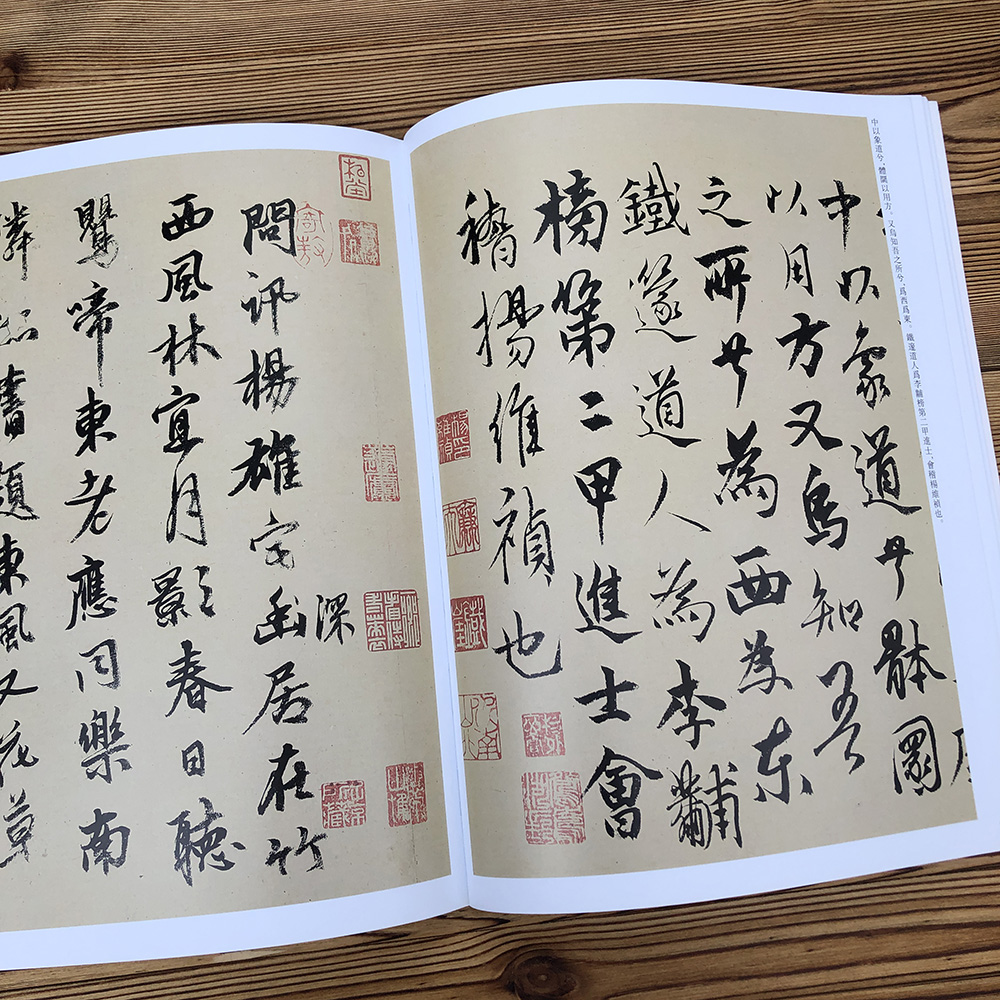 中以象道兮，體圜以用方。又烏知吾之所兮，爲西爲東。鐵篴道人爲李黼榜第二甲進士、會稽楊維禎也。
中以象道兮體圜
以用方又烏知吾
之所兮為西為東
鐵篴道人為李黼
榜第二甲進士會
稽楊維禎也
問訊楊雄宅幽居在竹
深
西風林宜月影春日聽
鸎啼東老應同樂南
隣書題東風又花草